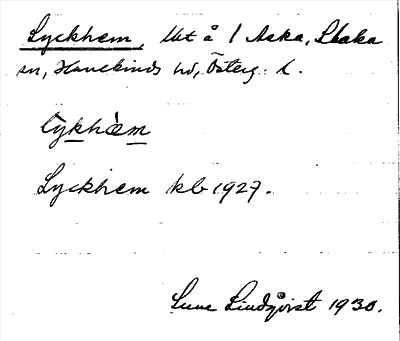 Lyckhem, Utå 1 Aska, Slaka
sn, Hanekinds hd, Österg. l.
lykhèm
Lyckhem kb 1927.
Sune Lindqvist 1930.